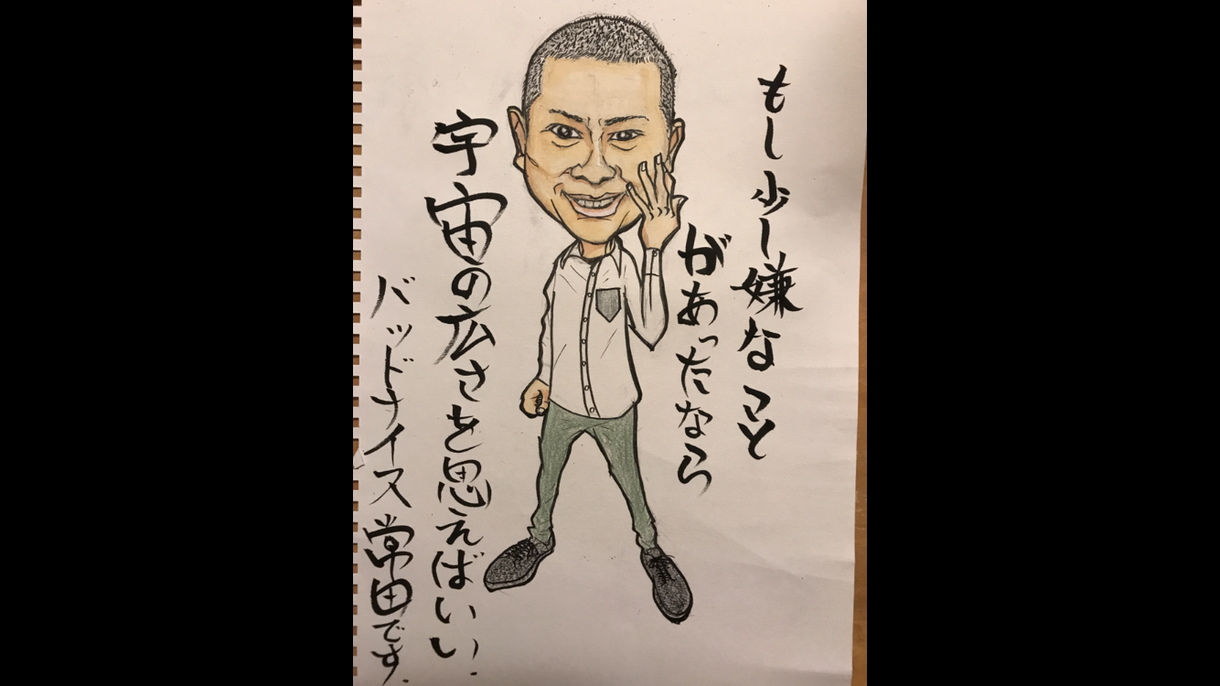 もし少し嫌なこと
があったなら
宇宙の広さを思えばいい.
バッドナイス常田です.